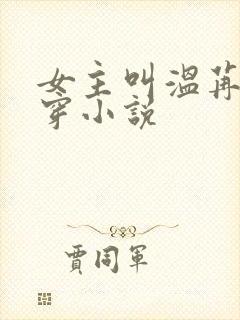 女主叫温苒
穿小说
贾同军